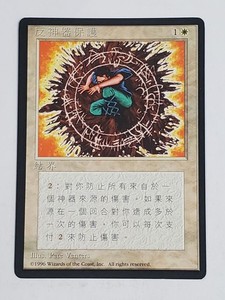 反神器護週 1
結界
2：對你防止所有來自於一
個神器來源的傷害。如果來
源在一個回合對你造成多於
一次的傷害，你可以每次支
付 2 來防止傷害。
Illus. Pete Venters
©1996 Wizards of the Coast, Inc. All rights reserved.